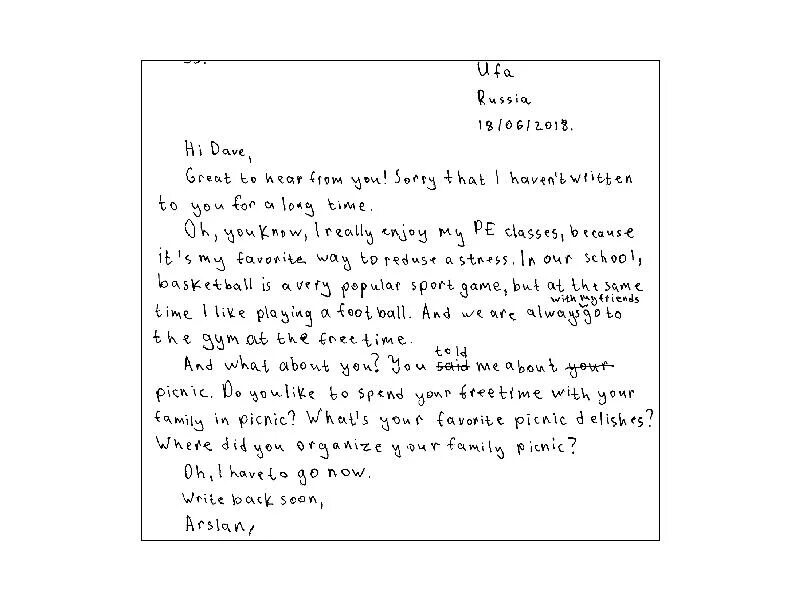 Ufa
Russia
18/06/2018.
Hi Dave,
Great to hear from you! Sorry that I haven't written
to you for a long time.
Oh, you know, I really enjoy my PE classes, because
it's my favorite way to reduse a stress. In our school,
basketball is a very popular sport game, but at the same
time I like playing a football. And we are always with my friends go to
the gym at the free time.
And what about you? You told me about
picnic. Do you like to spend your freetime with your
family in picnic? What's your favorite picnic delishes?
Where did you organize your family picnic?
Oh, I have to go now.
Write back soon,
Arslan,